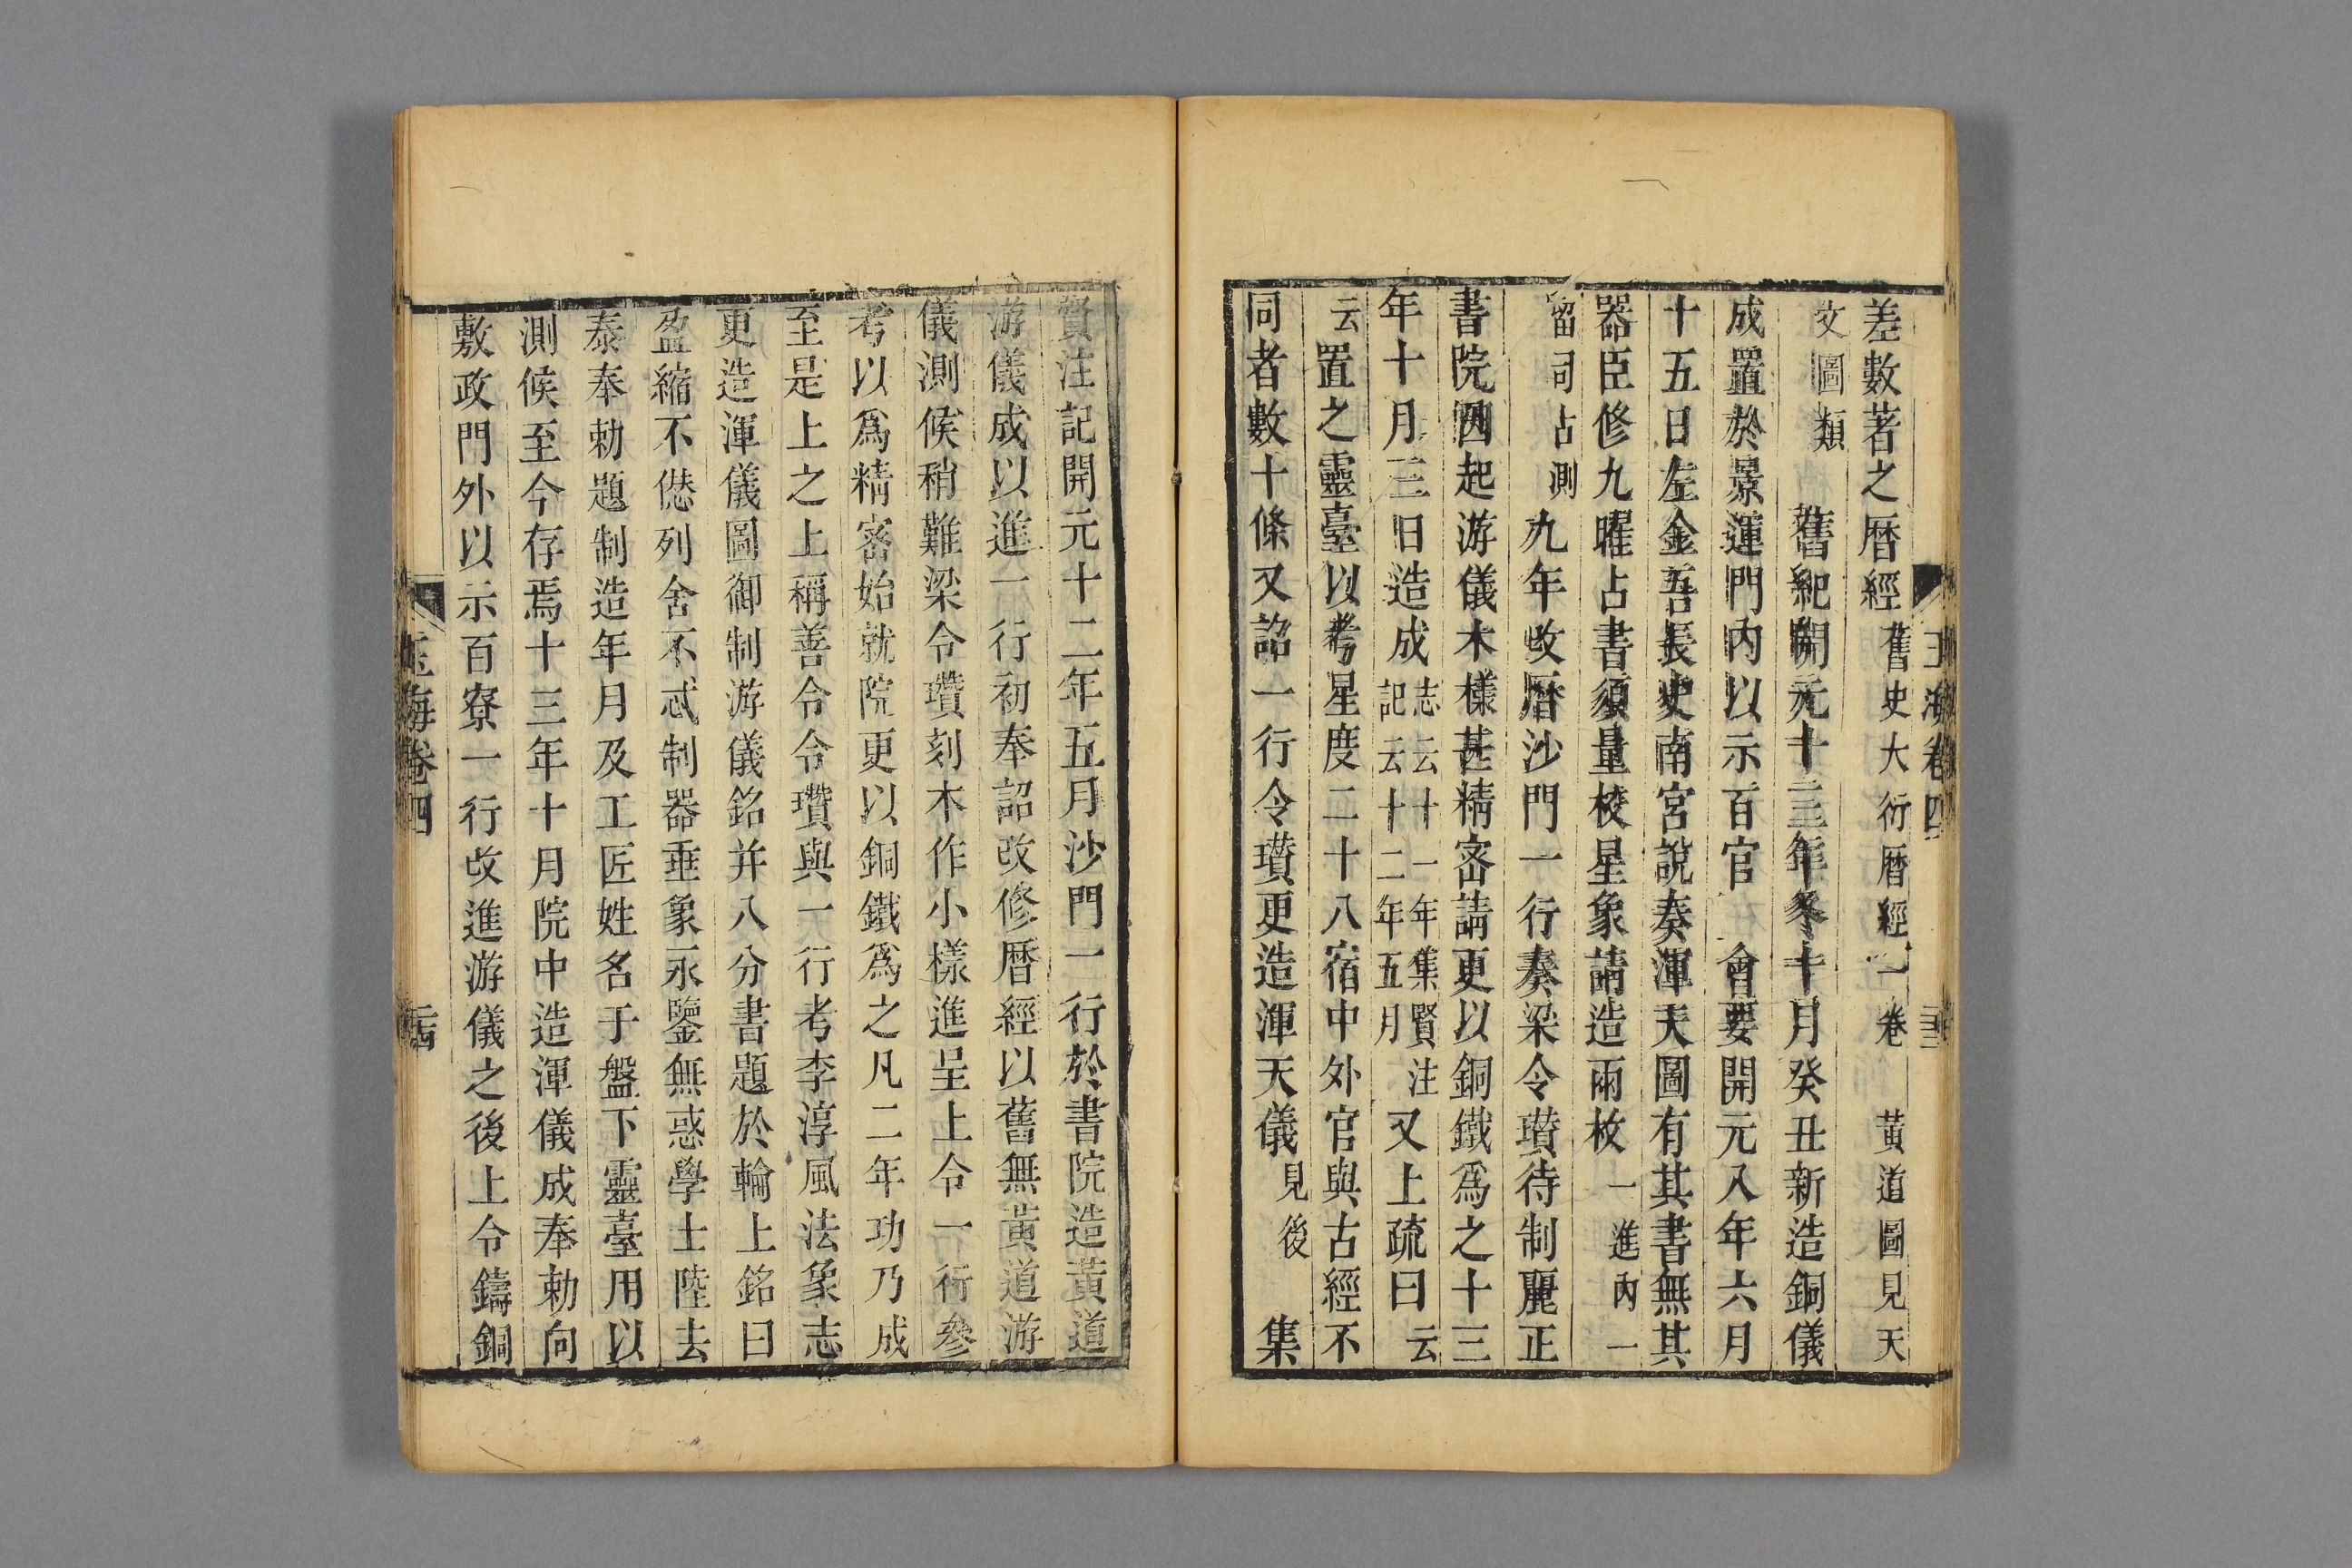 差數著之曆經舊史大衍曆經一卷黃道圖見天
文圖類　舊紀開元十三年冬十月癸丑新造銅儀
成置於景運門內以示百官　會要開元八年六月
十五日左金吾長史南宮說奏渾天圖有其書無其
器臣修九曜占書須量校星象請造兩枚一進內一
留司占測　九年改曆沙門一行奏梁令瓚待制麗正
書院因起游儀木樣甚精密請更以銅鐵爲之十三
年十月三日造成志云十一年集賢注記云十二年五月又上疏曰云
云置之靈臺以考星度二十八宿中外官與古經不
同者數十條又詔一行令瓚更造渾天儀見後　集
玉海卷四
賢注記開元十二年五月沙門一行於書院造黃道
游儀成以進一行初奉詔改修曆經以舊無黃道游
儀測候稍難梁令瓚刻木作小樣進呈上令一行參
考以爲精密始就院更以銅鐵爲之凡二年功乃成
至是上之上稱善令令瓚與一行考李淳風法象志
更造渾儀圖御制游儀銘并八分書題於輪上銘曰
盈縮不愆列舍不忒制器垂象永鑒無惑學士陸去
泰奉勅題制造年月及工匠姓名于盤下靈臺用以
測候至今存焉十三年十月院中造渾儀成奉勅向
敷政門外以示百寮一行改進游儀之後上令鑄銅
玉海卷四